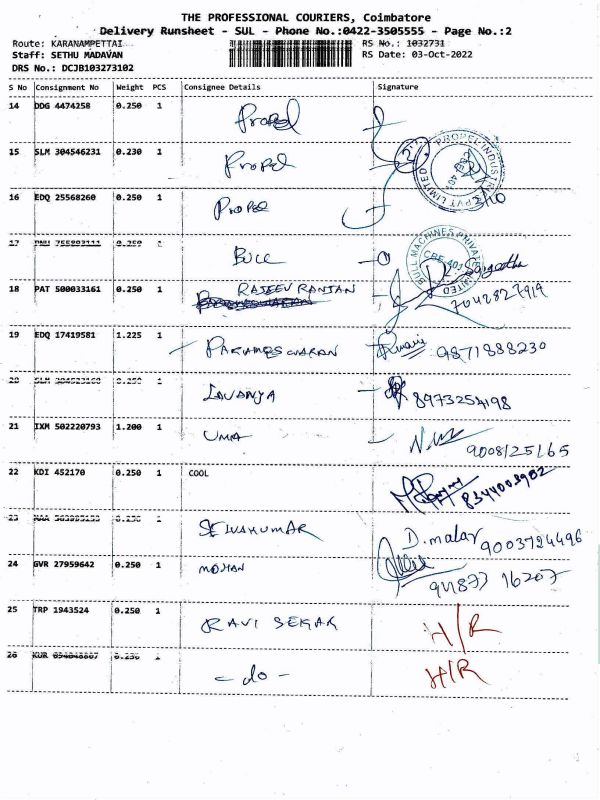 THE PROFESSIONAL COURIERS, Coimbatore
Delivery Runsheet - SUL - Phone No.:0422-3505555 - Page No.:2
Route: KARANAMPETTAI
RS No.: 1032731
Staff: SETHU MADAVAN
RS Date: 03-Oct-2022
DRS No.: DCJB103273102
S No Consignment No Weight PCS Consignee Details Signature
14 DDG 4474258 0.250 1 Propel
15 SLM 304546231 0.230 1 Propel
PROPEL INDUSTRIES PVT LIMITED
16 EDQ 25568260 0.250 1 Propel
17 1 BULL
BULL MACHINES PRIVATE LIMITED
CBE-401
18 PAT 500033161 0.250 1 RAJEEV RANJAN
7042827919
19 EDQ 17419581 1.225 1 PARAMESWARAN 9871888230
20 LAVANYA 8973254198
21 IXM 502220793 1.200 1 UMA 9008125165
22 KDI 452170 0.250 1 COOL 8344003902
23 SELVAKUMAR D. malar 9003724496
24 GVR 27959642 0.250 1 MOHAN 94873 16207
25 TRP 1943524 0.250 1 RAVI SEKAR H/R
26 KUR - do - H/R